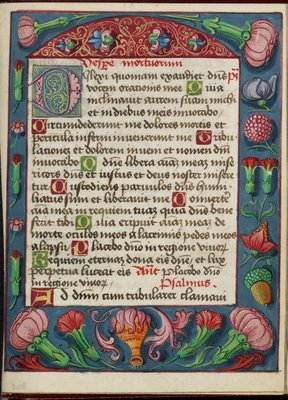 Vespe mortuorum
Dilexi quoniam exaudiet dns
vocem orationis mee Quia
inclinauit aurem suam michi
et in diebus meis inuocabo
Circumdederunt me dolores mortis et
pericula inferni inuenerunt me Tribu
lationes et dolorem inueni et nomen dni
inuocabo O dne libera aiam meam mise
ricors dns et iustus et deus noster misere
tur Custodiens paruulos dns humi
liatus sum et liberauit me Conuerte
aia mea in requiem tuam quia dns bene
fecit tibi Quia eripuit aiam meam de
morte oculos meos a lacrimis pedes meos
a lapsu Placebo dno in regione viuorum
Requiem eternam dona eis dne et lux
perpetua luceat eis Ant Placebo dno
in regione viuorum Psalmus
Ad dnm cum tribularer clamaui